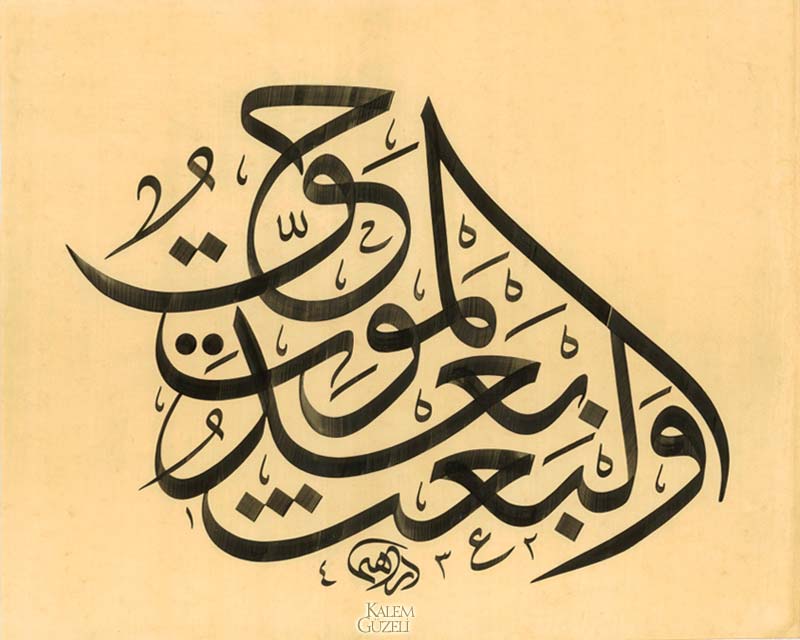 والبعث بعد الموت حق
١٤٣٢ ع
KALEM
GÜZELİ